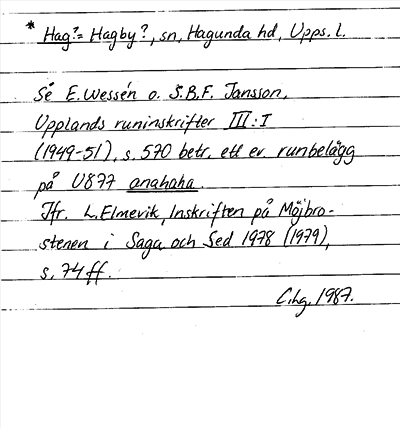 * Hag?= Hagby?, sn, Hagunda hd, Upps. l.
Så E. Wessén o. S.B.F. Jansson,
Upplands runinskrifter III:1
(1949-51), s. 570 betr. ett ev. runbelägg
på U877 anahaha.
Jfr. L. Elmevik, Inskriften på Möjbro-
stenen i Saga och Sed 1978 (1979),
s. 74 ff.
C.hg. 1987.